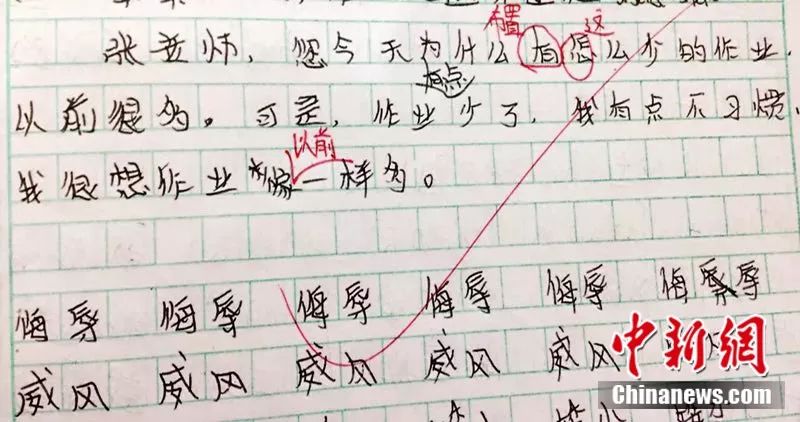 布置 这
张老师，您今天为什么有怎么少的作业，
有点
以前很多。可是，作业少了，我有点不习惯，
以前
我很想作业像一样多。
侮辱 侮辱 侮辱 侮辱 侮辱 侮辱
威风 威风 威风 威风 威风
中新网
Chinanews.com